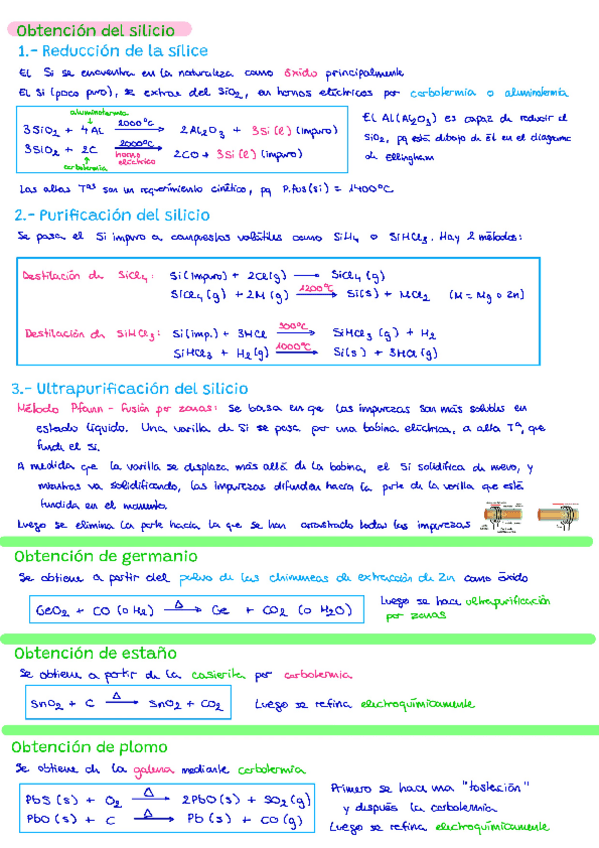 Obtención del silicio
1.- Reducción de la sílice
El Si se encuentra en la naturaleza como óxido principalmente
El Si (poco puro), se extrae del SiO2, en hornos eléctricos por carbotermia o aluminotermia
aluminotermia
3SiO2 + 4Al 2000ºC 2Al2O3 + 3Si(l) (impuro)
3SiO2 + 2C 2000ºC horno eléctrico 2CO + 3Si(l) (impuro)
carbotermia
El Al(Al2O3) es capaz de reducir el
SiO2, pq está debajo de él en el diagrama
de Ellingham
Las altas Tas son un requerimiento cinético, pq P.fus(Si) = 1400ºC
2.- Purificación del silicio
Se pasa el Si impuro a compuestos volátiles como SiH4 o SiHCl3. Hay 2 métodos:
Destilación de SiCl4: Si(impuro) + 2Cl(g) → SiCl4(g)
SiCl4(g) + 2M(g) 1200ºC Si(s) + MCl2 (M = Mg o Zn)
Destilación de SiHCl3: Si(imp.) + 3HCl 300ºC SiHCl3(g) + H2
SiHCl3 + H2(g) 1000ºC Si(s) + 3HCl(g)
3.- Ultrapurificación del silicio
Método Pfann - fusión por zonas: se basa en que las impurezas son más solubles en
estado líquido. Una varilla de Si se pasa por una bobina eléctrica, a alta Tª, que
funde el Si.
A medida que la varilla se desplaza más allá de la bobina, el Si solidifica de nuevo, y
mientras va solidificando, las impurezas difunden hacia la parte de la varilla que está
fundida en el momento.
Luego se elimina la parte hacia la que se han arrastrado todas las impurezas
Obtención de germanio
Se obtiene a partir del polvo de las chimeneas de extracción de Zn como óxido
GeO2 + CO (o H2) Δ→ Ge + CO2 (o H2O)
Luego se hace ultrapurificación
por zonas
Obtención de estaño
Se obtiene a partir de la casiterita por carbotermia
SnO2 + C Δ→ SnO2 + CO2
Luego se refina electroquímicamente
Obtención de plomo
Se obtiene de la galena mediante carbotermia
PbS(s) + O2 Δ→ 2PbO(s) + SO2(g)
PbO(s) + C Δ→ Pb(s) + CO(g)
Primero se hace una "tostación"
y después la carbotermia
Luego se refina electroquímicamente